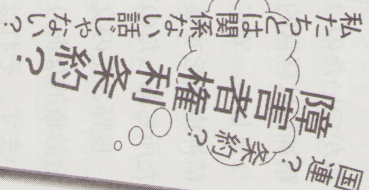 国連?
条約?
障害者権利条約?
私たちとは関係ない話じゃない?